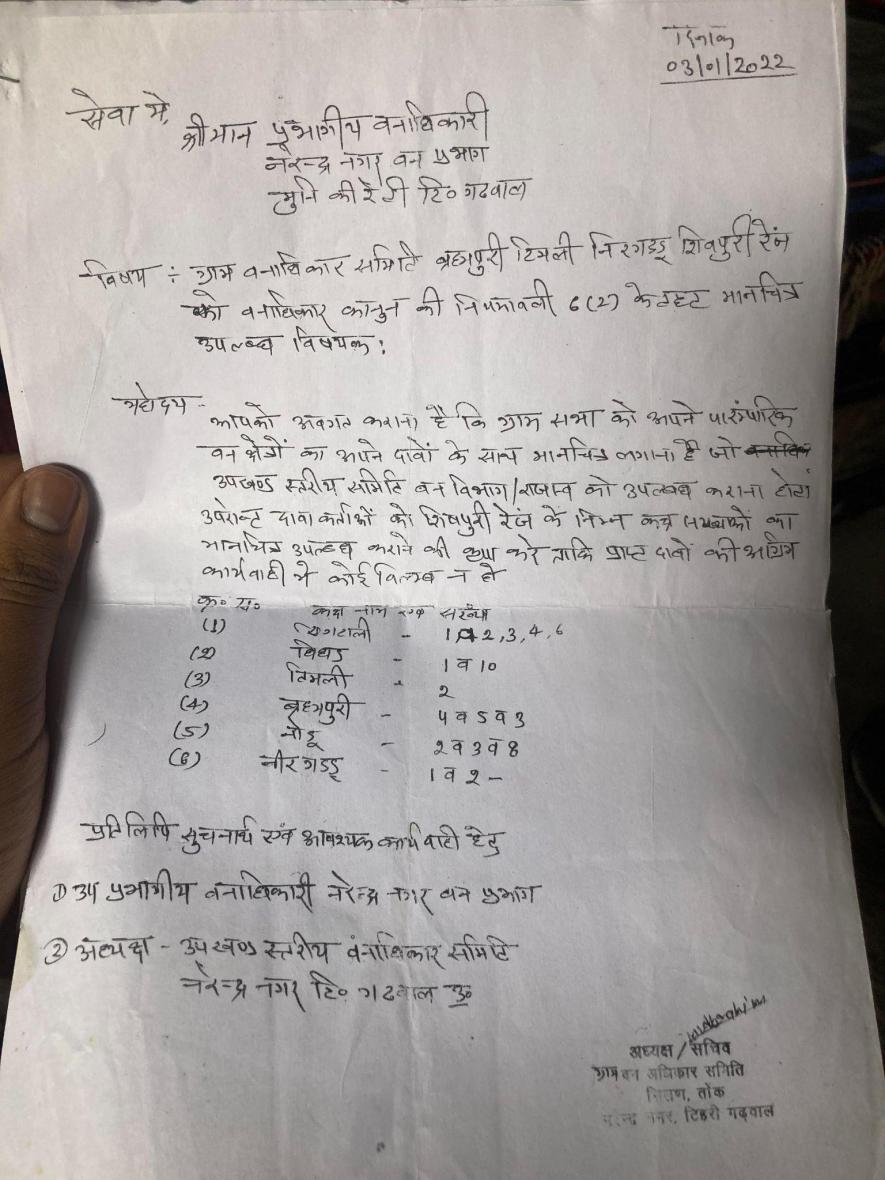 दिनांक
03/01/2022
सेवा में,
श्रीमान प्रभागीय वनाधिकारी
नरेन्द्र नगर वन प्रभाग
मुनि की रेती टि० गढवाल
विषय : ग्राम वनाधिकार समिति ब्रह्मपुरी टिमली निरगड्डू शिवपुरी रेंज
को वनाधिकार कानुन की नियमावली 6(2) के तहत मानचित्र
उपलब्ध विषयक:
महोदय -
आपको अवगत कराना है कि ग्राम सभा को अपने पारंम्पारिक
वन क्षेत्रों का अपने दावों के साथ मानचित्र लगाना है जो
उपखण्ड स्तरीय समिति वन विभाग/राजस्व को उपलब्ध कराना होता
उपरान्त दावा कर्ताओं को शिवपुरी रेंज के निम्न कक्ष का
मानचित्र उपलब्ध कराने की कृपा करे ताकि प्राप्त दावों की अग्रिम
कार्यवाही मे कोई विलम्ब न हो
क्र० सं० कक्ष नाम एवं संख्या
(1) - 1, 2, 3, 4, 6
(2) - 1 व 10
(3) तिमली - 2
(4) ब्रह्मपुरी - 4 व 5 व 3
(5) - 2 व 3 व 8
(6) नीरगड्डू - 1 व 2 -
प्रतिलिपि सुचनार्थ एवं आवश्यक कार्यवाही हेतु
1) उप प्रभागीय वनाधिकारी नरेन्द्र नगर वन प्रभाग
2) अध्यक्ष - उपखण्ड स्तरीय वनाधिकार समिति
नरेन्द्र नगर टि० गढवाल उ०
अध्यक्ष / सचिव
ग्राम वन अधिकार समिति
तोंक
नरेन्द्र नगर, टिहरी गढ़वाल